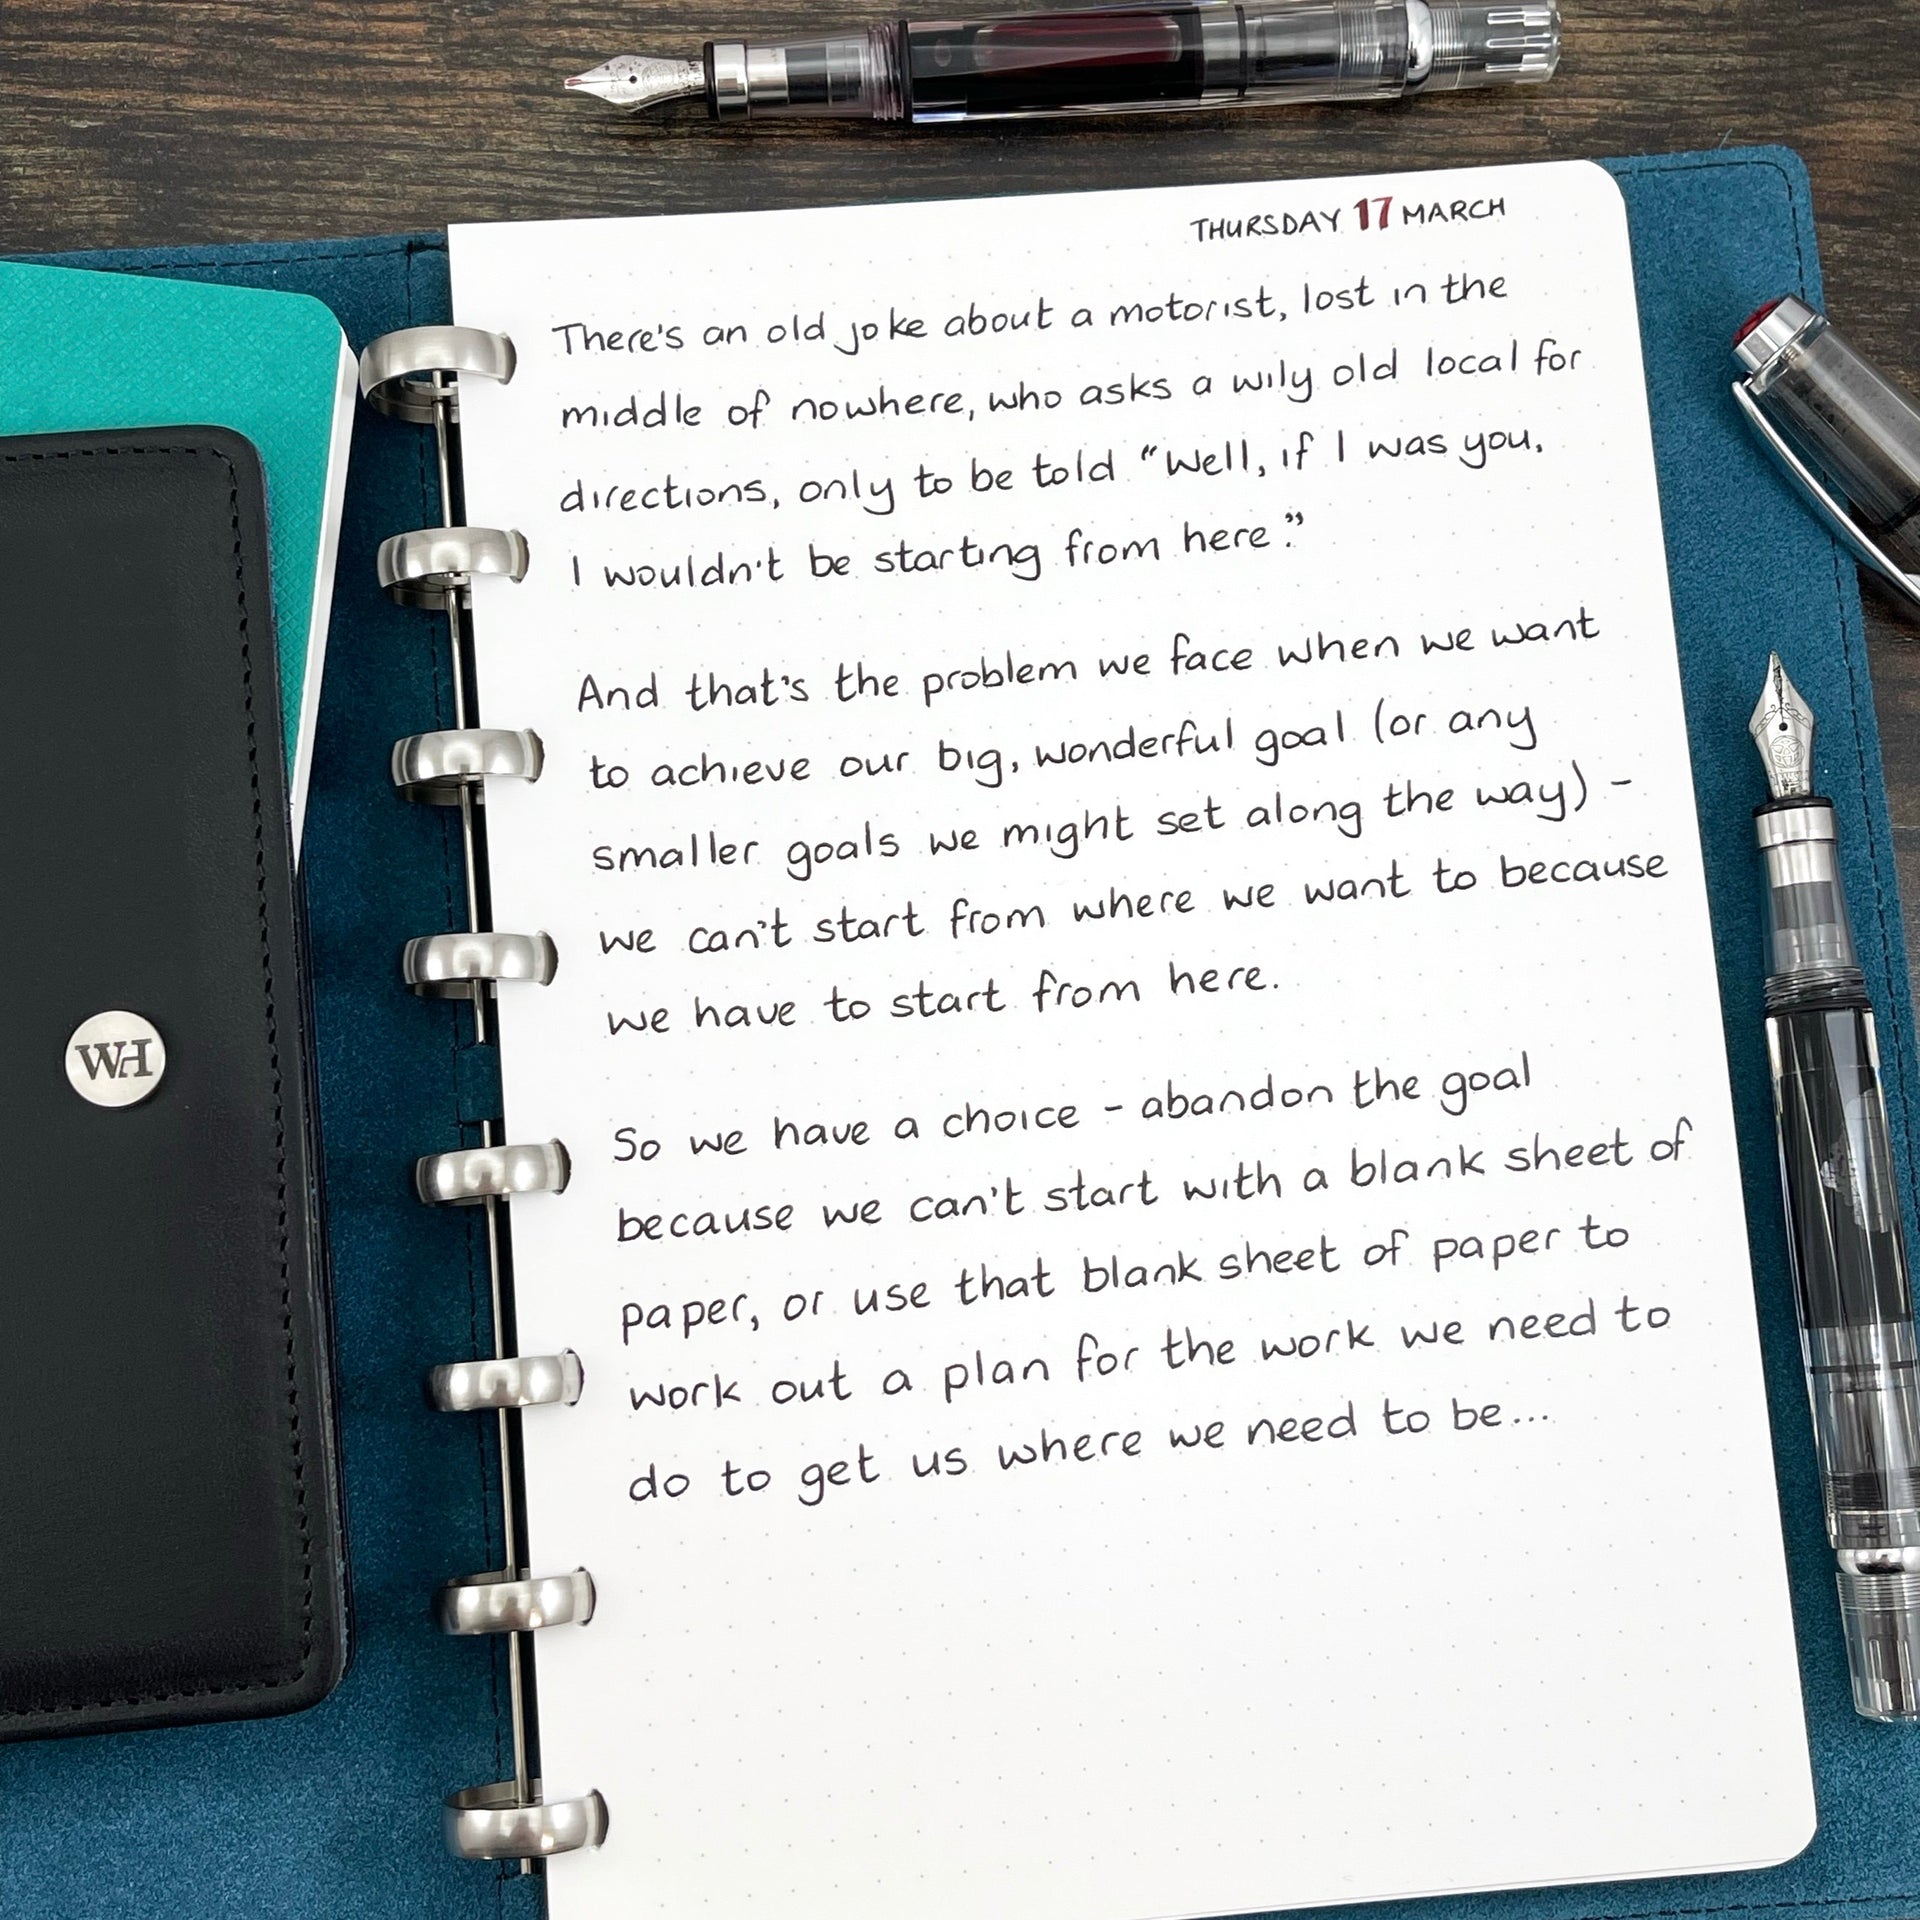 THURSDAY 17 MARCH
There's an old joke about a motorist, lost in the
middle of nowhere, who asks a wily old local for
directions, only to be told "Well, if I was you,
I wouldn't be starting from here."
And that's the problem we face when we want
to achieve our big, wonderful goal (or any
smaller goals we might set along the way) -
we can't start from where we want to because
we have to start from here.
So we have a choice - abandon the goal
because we can't start with a blank sheet of
paper, or use that blank sheet of paper to
work out a plan for the work we need to
do to get us where we need to be...
WH